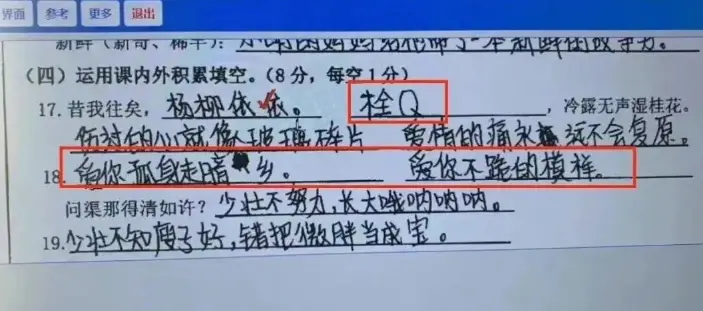 界面 参考 更多 退出
新鲜（新奇、稀罕）：
（四）运用课内外积累填空。（8分，每空1分）
17. 昔我往矣，杨柳依依。 栓Q ，冷露无声湿桂花。
伤过的心就像玻璃碎片 爱情的痛永远不会复原。
18. 爱你孤身走暗乡。 爱你不跪的模样。
问渠那得清如许？少壮不努力，长大哦呐呐呐。
19. 少壮不知瘦子好，错把微胖当成宝。